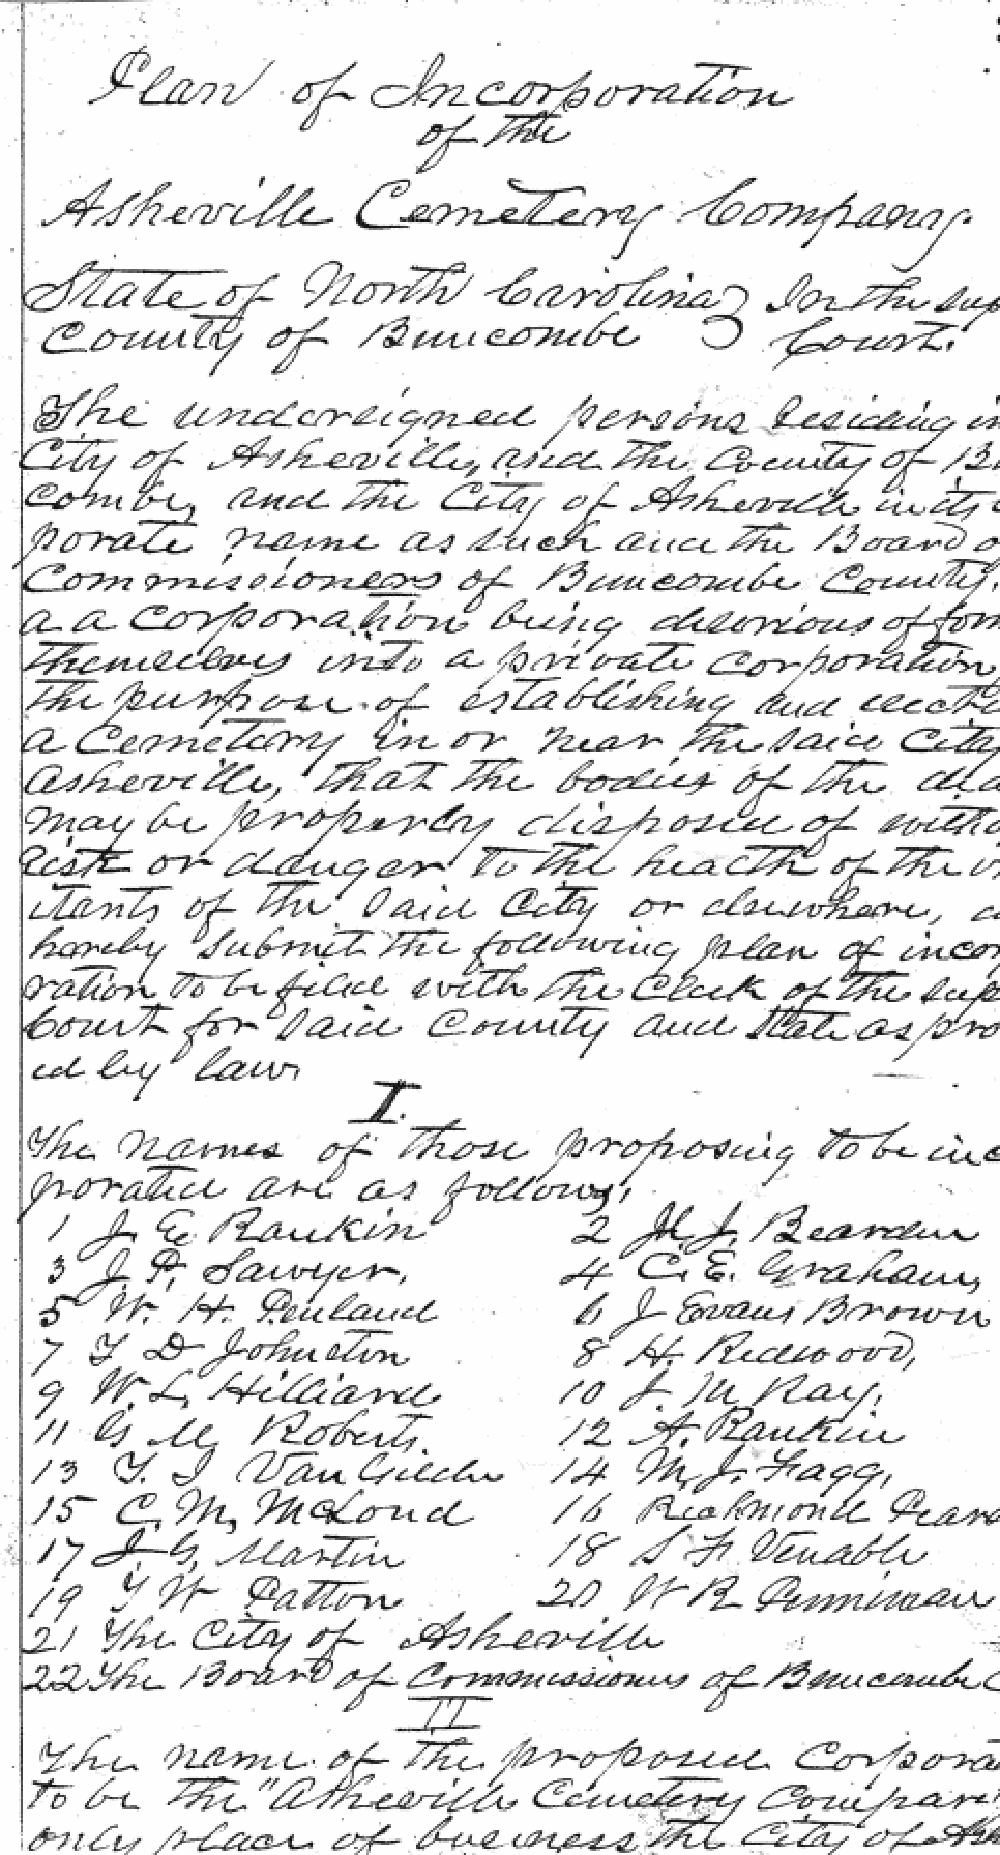 Plan of Incorporation
of the
Asheville Cemetery Company.
State of North Carolina } In the Sup
County of Buncombe } Court.
The undersigned persons residing in
City of Asheville, and the County of Bu
combe, and the City of Asheville in its
porate name as such and the Board o
Commissioners of Buncombe County,
a a corporation being desirous of for
themselves into a private corporation
the purpose of establishing and erect
a Cemetery in or near the said City
Asheville, that the bodies of the dea
may be properly disposed of witho
risk or danger to the health of the in
itants of the said City or elsewhere, d
hereby submit the following plan of incor
ration to be filed with the Clerk of the Sup
Court for said County and State as pro
ed by law,
I.
The names of those proposing to be inc
porated are as follows,
1 J. E. Rankin 2 M. J. Bearden
3 J. P. Sawyer, 4 C. E. Graham,
5 W. H. Penland 6 J Evans Brown
7 T D Johnston 8 H. Redwood,
9 W. L. Hilliard 10 J. M Ray,
11 G M Roberts. 12 A. Rankin
13 T. I Van Gilder 14 M. J. Fagg,
15 C. M, McLoud 16 Richmond Pears
17 J. G, Martin 18 S F. Venable
19 T W Patton 20 W R Penniman
21 The City of Asheville
22 The Board of Commissioners of Buncombe C
II
The name of the proposed Corpora
to be the "Asheville Cemetery Company
only place of business the City of Ash